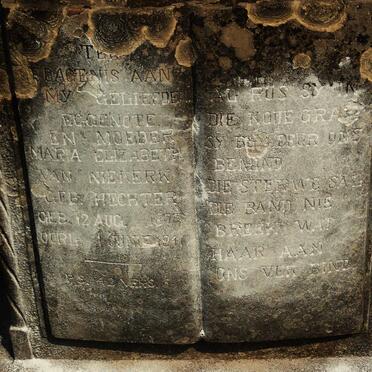 GEDAGENIS AAN
MY GELIEFDE
EGGENOTE
EN MOEDER
MARIA ELIZABETH
VAN NIEKERK
GEB. HECHTER
GEB. 12 AUG. 1875
OORL. JUNIE
VERS
AG RUS
DIE KOUE GRAF
SY BLY DEUR ONS
BEMIND
DIE STERWE SAL
DIE BAND NIE
BREEK WAT
HAAR AAN
ONS VERBIND